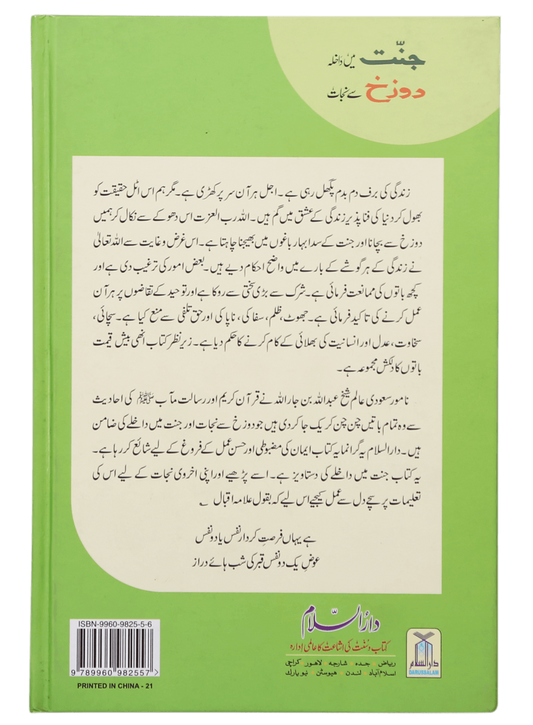 جنّت میں داخلہ
دوزخ سے نجات
زندگی کی برف دم بدم پگھل رہی ہے۔ اجل ہر آن سر پر کھڑی ہے۔ مگر ہم اس اٹل حقیقت کو
بھول کر دنیا کی فنا پذیر زندگی کے عشق میں گم ہیں۔ اللہ رب العزت اس دھوکے سے نکال کر ہمیں
دوزخ سے بچانا اور جنت کے سدا بہار باغوں میں بھیجنا چاہتا ہے۔ اس غرض و غایت سے اللہ تعالیٰ
نے زندگی کے ہر گوشے کے بارے میں واضح احکام دیے ہیں۔ بعض امور کی ترغیب دی ہے اور
کچھ باتوں کی ممانعت فرمائی ہے۔ شرک سے بڑی سختی سے روکا ہے اور توحید کے تقاضوں پر ہر آن
عمل کرنے کی تاکید فرمائی ہے۔ جھوٹ، ظلم، سفاکی، ناپاکی اور حق تلفی سے منع کیا ہے۔ سچائی،
سخاوت، عدل اور انسانیت کی بھلائی کے کام کرنے کا حکم دیا ہے۔ زیر نظر کتاب انھی بیش قیمت
باتوں کا دلکش مجموعہ ہے۔
نامور سعودی عالم شیخ عبداللہ بن جار اللہ نے قرآن کریم اور رسالت مآب ﷺ کی احادیث
سے وہ تمام باتیں چن چن کر یک جا کر دی ہیں جو دوزخ سے نجات اور جنت میں داخلے کی ضامن
ہیں۔ دارالسلام یہ گرانمایہ کتاب ایمان کی مضبوطی اور حسن عمل کے فروغ کے لیے شائع کر رہا ہے۔
یہ کتاب جنت میں داخلے کی دستاویز ہے۔ اسے پڑھیے اور اپنی اخروی نجات کے لیے اس کی
تعلیمات پر سچے دل سے عمل کیجیے اس لیے کہ بقول علامہ اقبال ؎
ہے یہاں فرصتِ کردار نفس یا دو نفس
عوضِ یک دو نفس قبر کی شب ہائے دراز
دارُالسّلام
کتاب و سنت کی اشاعت کا عالمی ادارہ
ریاض جدہ شارجہ لاہور کراچی
اسلام آباد لندن ہیوسٹن نیو یارک
دارالسلام
DARUSSALAM
ISBN-9960-9825-5-6
9 789960 982557 >
PRINTED IN CHINA - 21